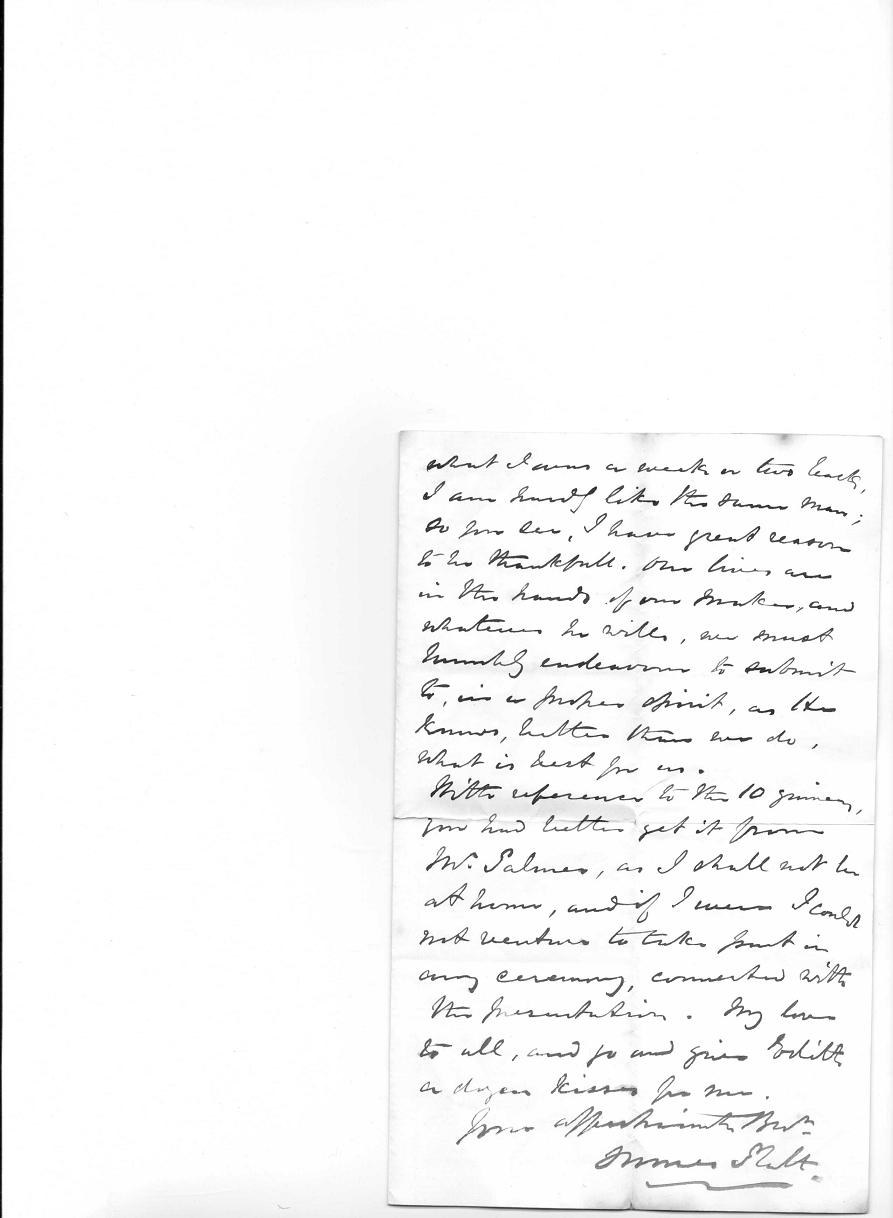 what I was a week or two back,
I am hardly like the same man;
so you see, I have great reason
to be thankfull. Our lives are
in the hands of our Maker, and
whatever he wills, we must
humbly endeavour to submit
to, in a proper spirit, as He
knows, better than we do,
what is best for us.
With reference to the 10 guineas,
you had better get it from
Mr. Palmer, as I shall not be
at home, and if I were I could
not venture to take part in
any ceremony, connected with
the presentation. My love
to all, and go and give Edith
a dozen kisses for me.
Your affectionate Bror.
James